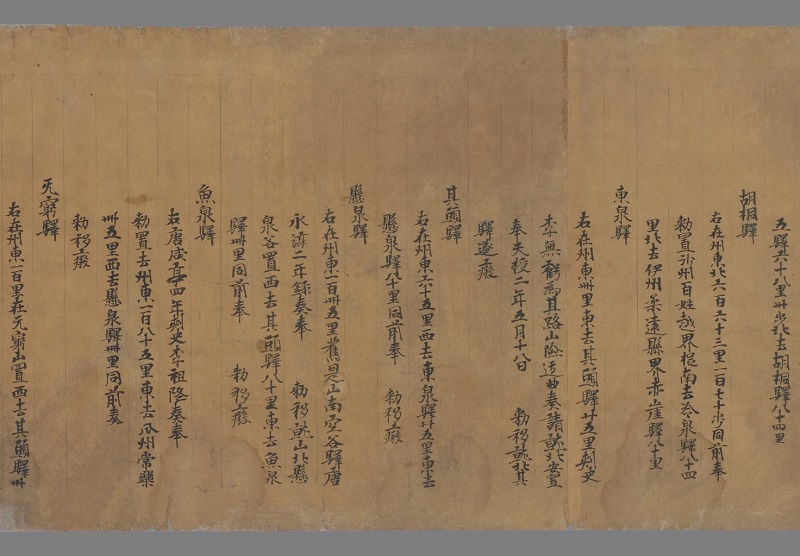 五驛六十八里卅步北去胡桐驛八十四里
胡桐驛
右在州東北六百六十三里一百七十步同前奉
勅置沙州百姓越界捉南去冷泉驛八十四
里北去伊州柔遠縣界赤崖驛八十里
東泉驛
右在州東卌里東去其頭驛廿五里刺史
李無虧為其路山險迂曲奏請就北安置
奉天授二年五月十八日 勅移就北其
驛遂廢
其頭驛
右在州東六十五里西去東泉驛廿五里東去
懸泉驛八十里同前奉 勅移廢
懸泉驛
右在州東一百卌五里舊是山南空谷驛唐
永淳二年錄奏奉 勅移就山北懸
泉谷置西去其頭驛八十里東去魚泉
驛卌里同前奉 勅移廢
魚泉驛
右唐咸亨四年刺史李祖隆奏奉
勅置去州東一百八十五里東去瓜州常樂
卌五里西去懸泉驛卌里同前奏
勅移廢
无窮驛
右在州東一百里在无窮山置西去其頭驛卅